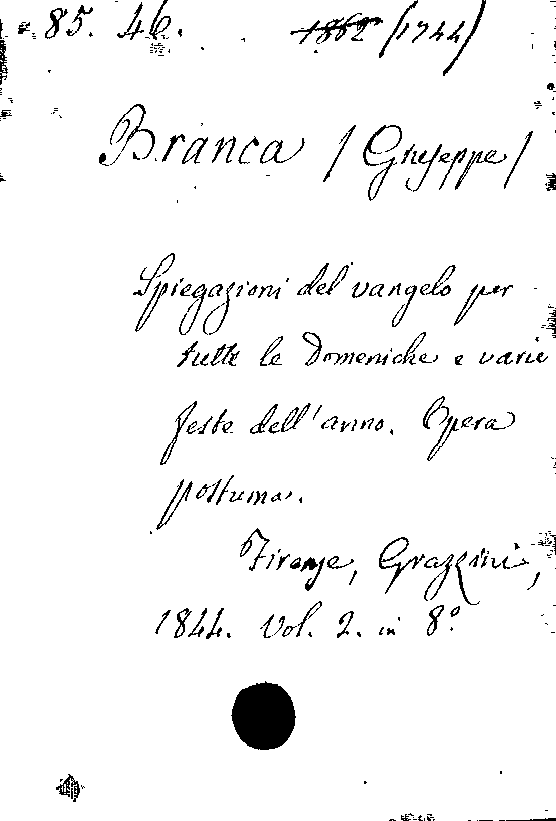 85. 46. 1862 (1744)
Branca / Giuseppe /
Spiegazioni del vangelo per
tutte le Domeniche e varie
feste dell'anno. Opera
postuma.
Firenze, Grazzini,
1844. Vol. 2. in 8º